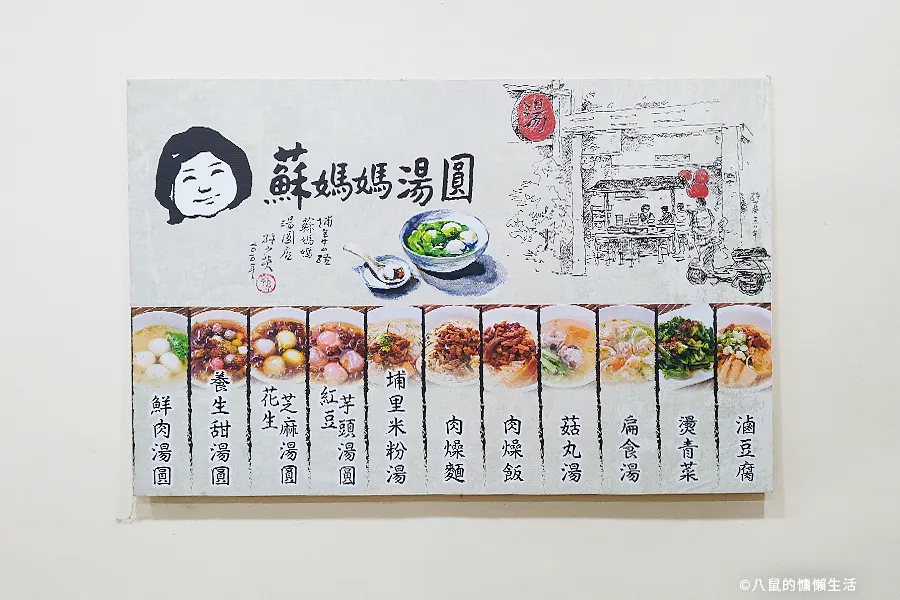 蘇媽媽湯圓
湯
埔里小鎮
蘇媽媽
湯圓店
鮮肉湯圓
養生甜湯圓
花生
芝麻湯圓
紅豆
芋頭湯圓
埔里米粉湯
肉燥麵
肉燥飯
菇丸湯
扁食湯
燙青菜
滷豆腐
©八鼠的慵懶生活